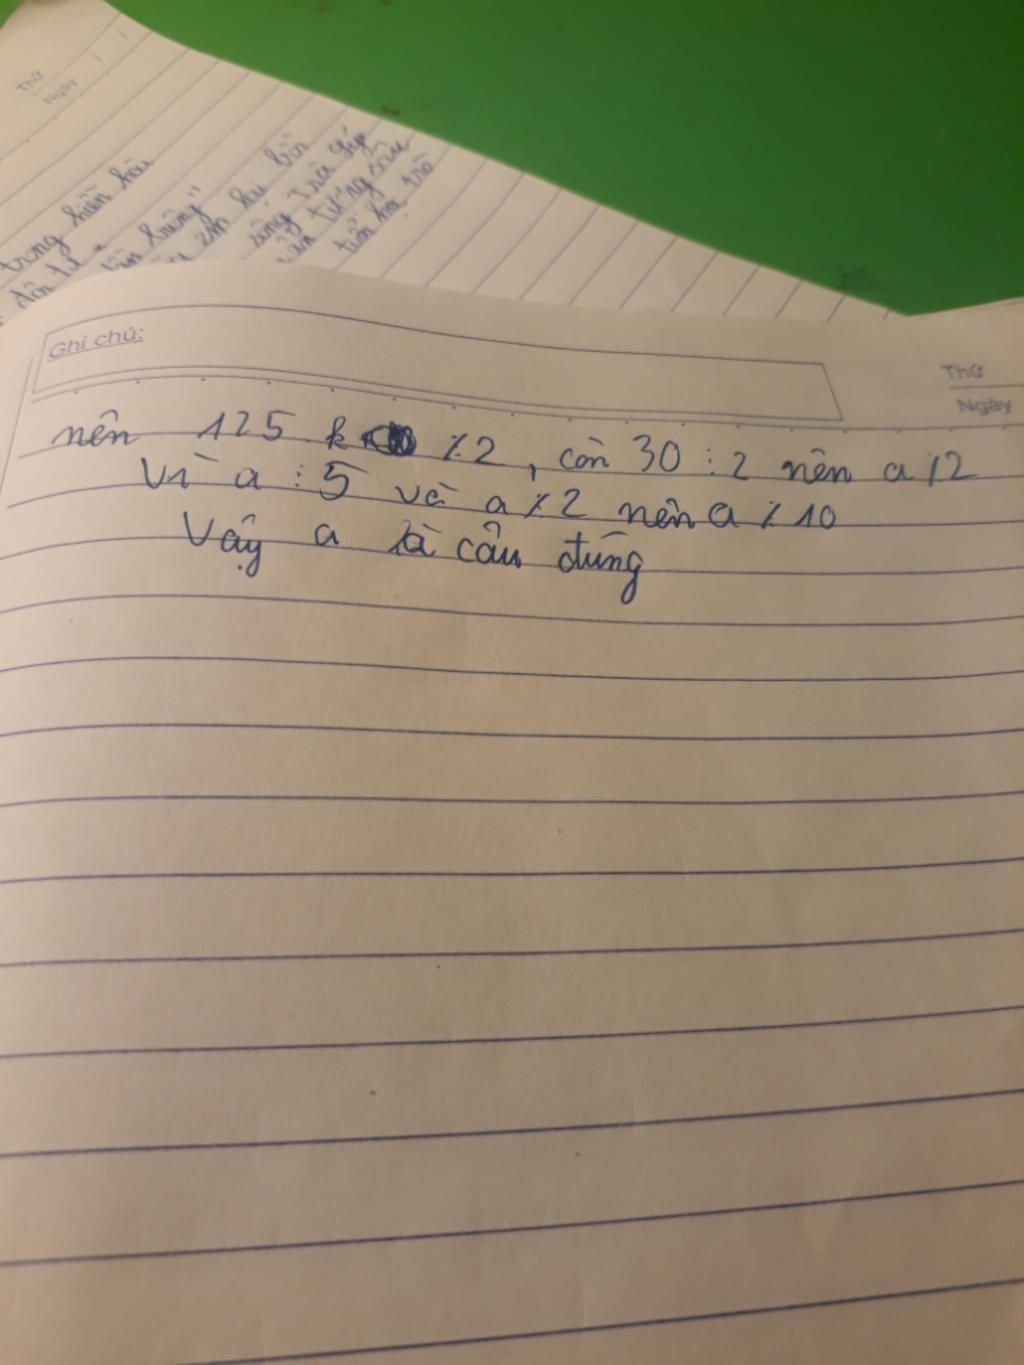 Thứ
Ngày
trong hiền hòa
em hai bờn
sông Trà
Ghi chú:
Thứ
Ngày
nên 125.k ⋮̸ 2, còn 30 ⋮ 2 nên a ⋮̸ 2
Vì a ⋮ 5 và a ⋮̸ 2 nên a ⋮̸ 10
Vậy a là câu đúng